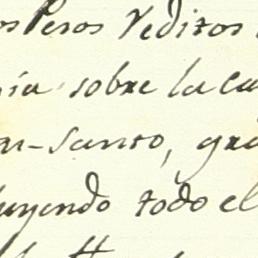 os Pesos Veditos
ía sobre la ca
n-santo, gra
uyendo todo el